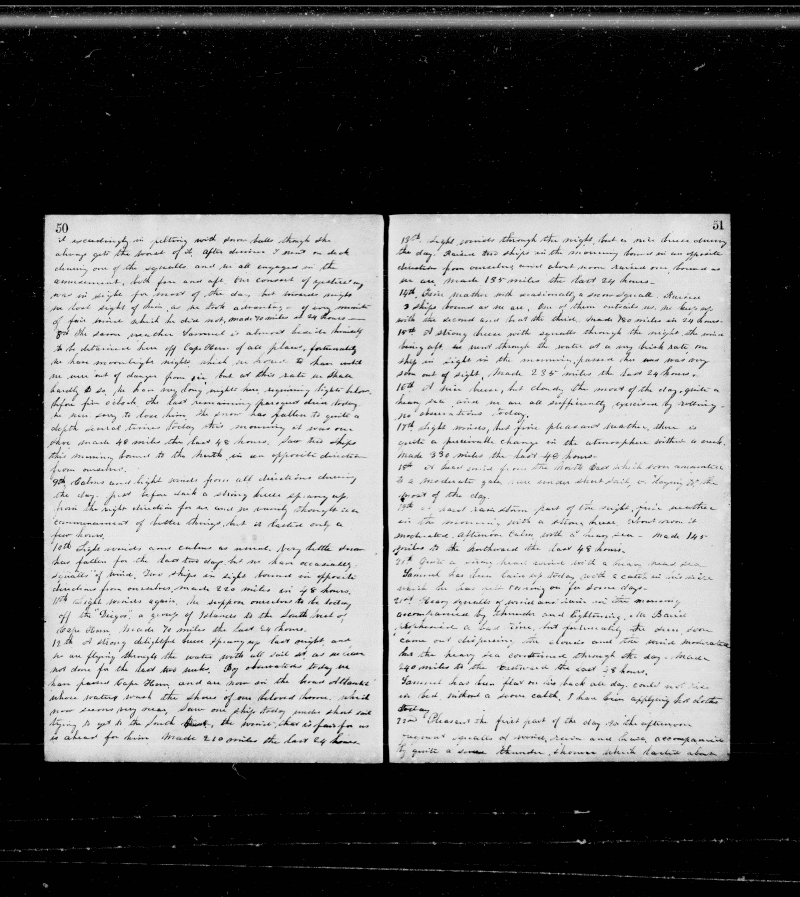 50
it exceedingly in pelting with snow balls though she
always gets the worst of it, After dinner I went on deck
during one of the squalls and we all engaged in the
amusement, both fore and aft. Our consort of yesterday
was in sight for most of the day, but towards night
we lost sight of him, as he took advantage of every minute
of fair wind which he did not, made 70 miles in 24 hours
8th The same weather Samuel is almost beside himself
to be detained here off Cape Horn of all places, fortunately
we have moonlight nights which we hope to have until
we are out of danger from ice but at this rate we shall
hardly do so. We have very long nights here, requiring lights below
before five o'clock The last remaining pig died today
we were sorry to lose him, The snow has fallen to quite a
depth several times today this morning it was over
shoe made 48 miles the last 48 hours. Saw two ships
this morning bound to the North in an opposite direction
from ourselves.
9th Calms and light winds from all directions during
the day. Just before dark a strong breeze sprang up
from the right direction for us and we vainly thought it a
commencement of better things, but it lasted only a
few hours.
10th Light winds and calms as usual, Very little snow
has fallen for the last two days, but we have occasionally
squalls of wind, Two ships in sight bound in opposite
directions from ourselves, made 220 miles in 48 hours.
11th Light winds again, We suppose ourselves to be today
off the "Diegos" a group of Islands to the South West of
Cape Horn, Made 70 miles the last 24 hours.
12th A strong delightful breeze sprang up last night and
we are flying through the water with all sail set, as we have
not done for the last two weeks, By observations today we
have passed Cape Horn and are now on the broad Atlantic
whose waters wash the shores of our beloved home, which
now seems very near, Saw one ship today under short sail
trying to get to the South, the wind that is fair for us
is ahead for him Made 210 miles the last 24 hours.
51
13th Light winds through the night, but a nice breeze during
the day. Raised two ships in the morning bound in an opposite
direction from ourselves and about noon raised one, bound as
we are, made 135 miles the last 24 hours.
14th Fair weather with occasionally a snow squall. Raised
3 ships bound as we are, One of them outsails us, we keep up
with the second and beat the third, made 180 miles in 24 hours.
15th A strong breeze with squalls through the night, the wind
being aft, we went through the water at a very brisk rate one
ship in sight in the morning, passed her was very
soon out of sight, Made 235 miles the last 24 hours.
16th A fair breeze, but cloudy the most of the day, quite a
heavy sea and we are all sufficiently exercised by rolling.
no observations today.
17th Light winds, but fine pleasant weather, there is
quite a perceivable change in the atmosphere within a week.
Made 330 miles the last 48 hours.
18th A head wind from the North East which soon
to a moderate gale, were under short sail, or laying to the
most of the day.
19th A hard rain storm part of the night, fair weather
in the morning with a strong breeze. About noon it
moderated, afternoon calm with a heavy sea. Made 145
miles to the Northward the last 48 hours.
20th Quite a strong head wind with a heavy head sea
Samuel has been laid up today with a catch in his side
which he has had coming on for some days.
21st Heavy squalls of wind and rain in the morning
accompanied by thunder and lightening. Mr Baird
a bad time, but fortunately the sun soon
came out dispersing the clouds and the wind moderated
but the heavy sea continued through the day. Made
240 miles to the Eastward the last 48 hours.
Samuel has been flat on his back all day, could not rise
in bed, without a severe catch, I have been applying hot cloths
today.
22nd Pleasant the first part of the day in the afternoon
squalls of wind, rain and hail, accompanied
by quite a severe thunder shower which lasted about